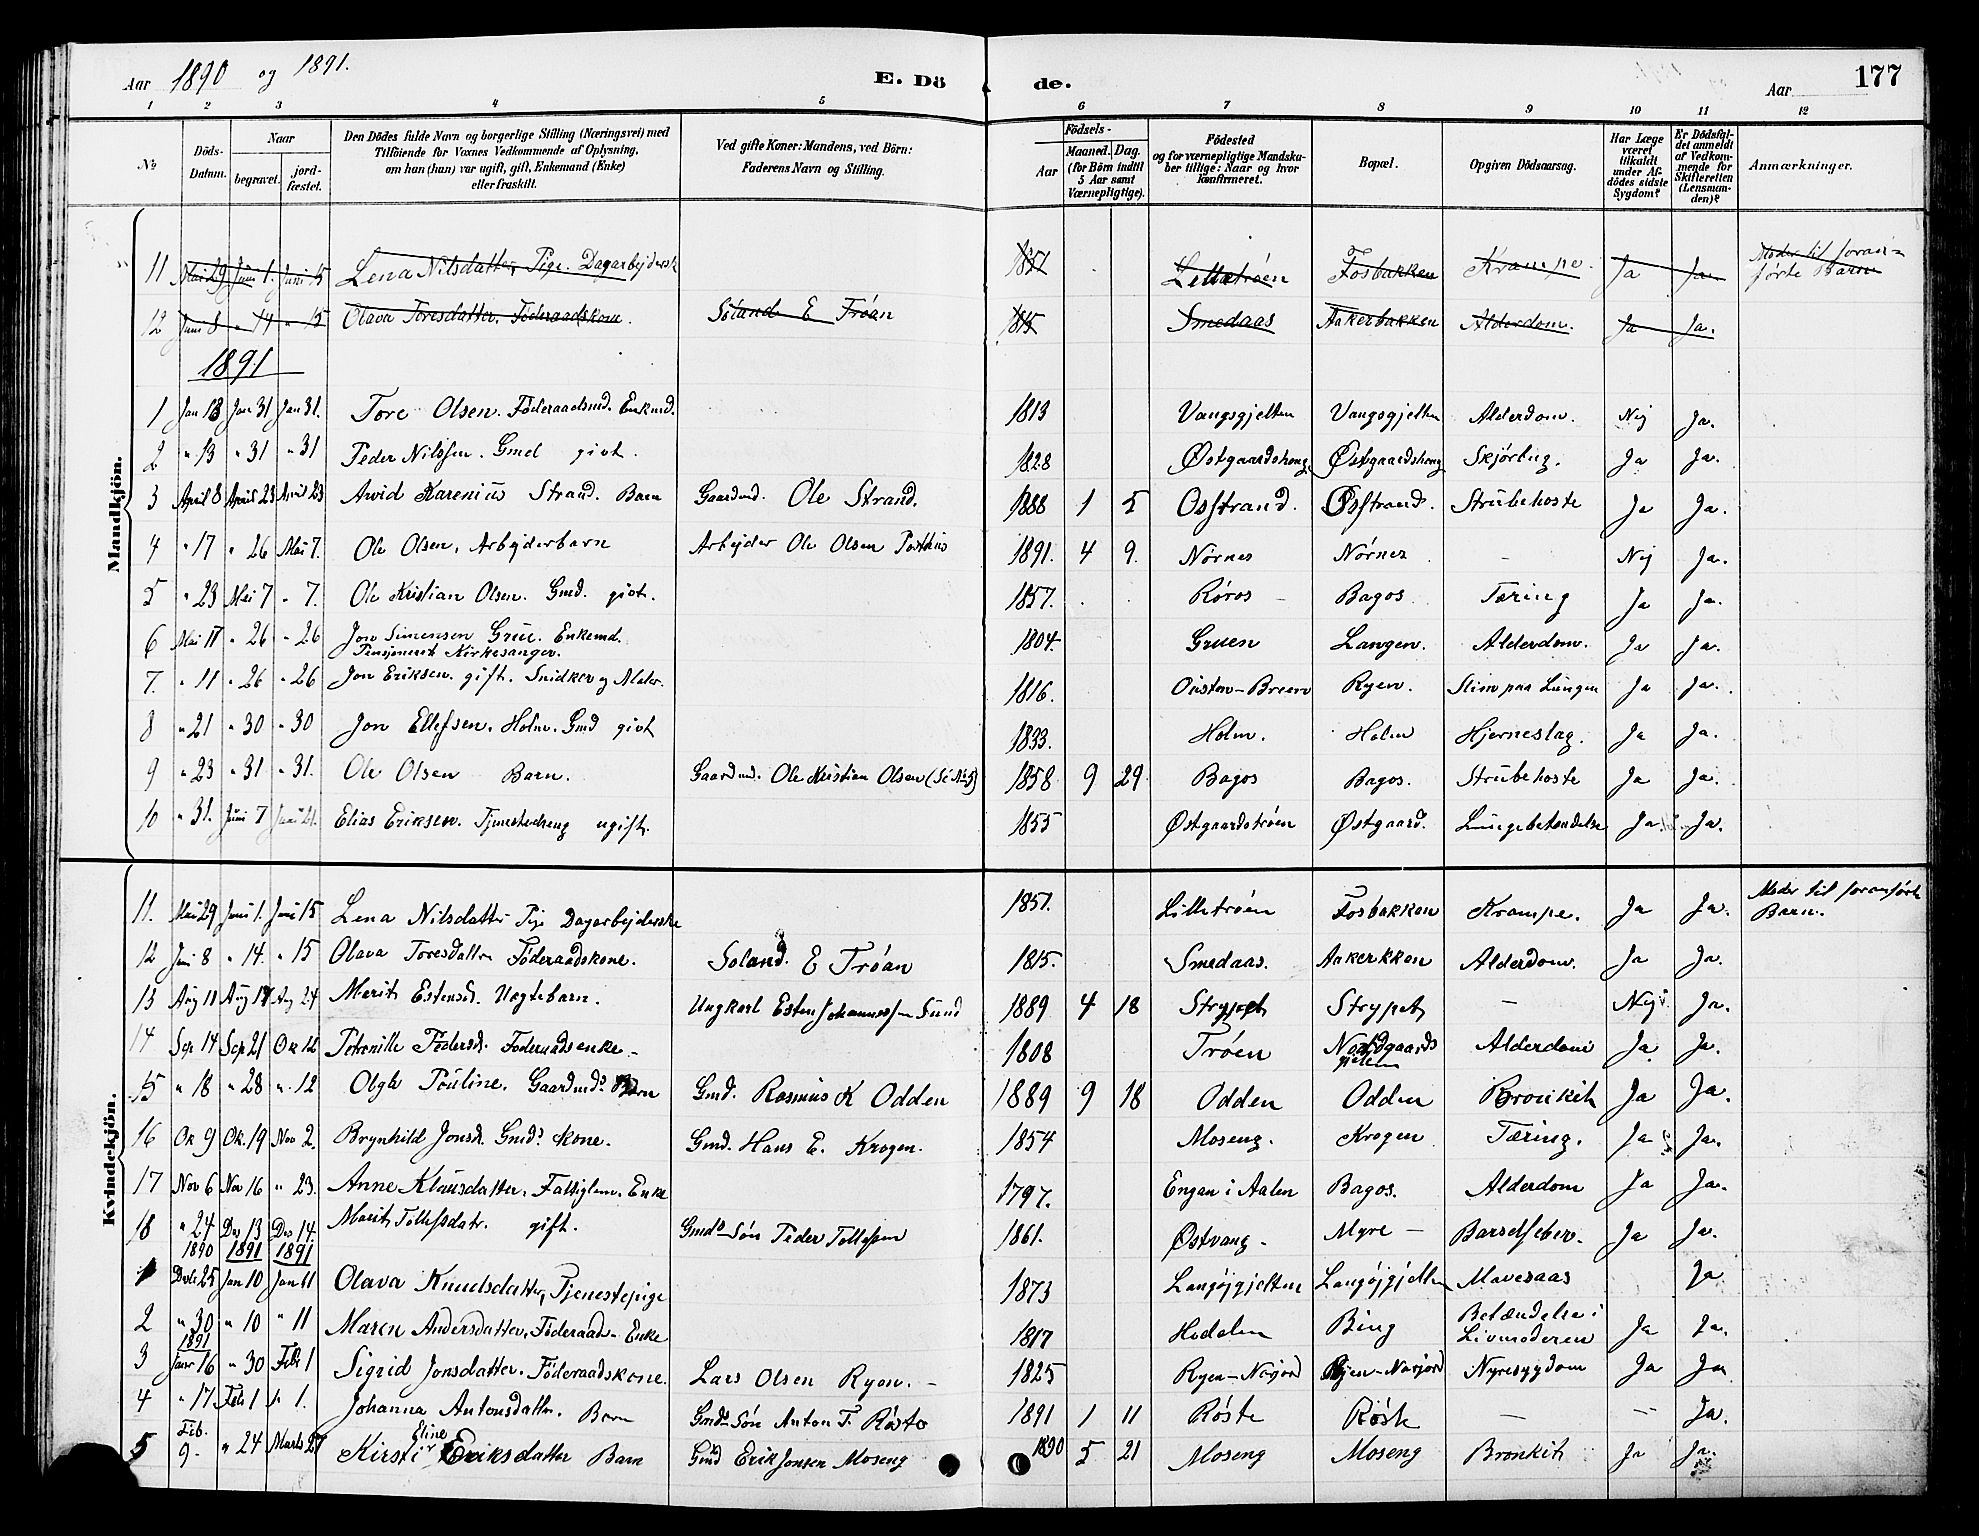 Aar 1890 og 1891. E. Dö de. Aar 177
1 2 3 4 5 6 7 8 9 10 11 12
No
Döds-Datum.
Naar begravet. jordfæstet.
Den Dödes fulde Navn og borgerlige Stilling (Næringsvei) med
Tilföiende for Voxnes Vedkommende af Oplysning,
om han (hun) var ugift, gift, Enkemand (Enke)
eller fraskilt.
Ved gifte Koner: Mandens, ved Börn:
Faderens Navn og Stilling.
Födsels-
Aar Maaned. Dag.
(for Börn indtil
5 Aar samt
Værnepligtige).
Födested
og for værnepligtige Mandskaber tillige: Naar og hvor
konfirmeret.
Bopæl.
Opgiven Dödsaarsag.
Har Læge
været
tilkaldt
under Afdödes sidste
Sygdom?
Er Dödsfaldet anmeldt
af Vedkommende for
Skifteretten
(Lensmanden)?
Anmærkninger.
Mandkjön.
11 Mai 29 Juni 1. Juni 15 Lena Nilsdatter, Pige. Dagarbejdersk 1851 Lilletrøen Fosbakken Krampe. Ja Ja Moder til foranførte Barn
12 Juni 8 " 14 " 15 Olava Toresdatter. Føderaadskone. Soland E Trøan 1815 Smedaas Aakerbakken Alderdom. Ja Ja.
1891
1 Jan 13 Jan 31 Jan 31. Tore Olsen. Føderaadsmd. Enkmd. 1813 Vangsgjelten Vangsgjelten Alderdom. Nej Ja.
2 " 13 " 31 " 31 Peder Nilssen. Gmd givt. 1828 Østgaardshaug Østgaardshaug Skjørbug. Ja Ja.
3 April 8 April 23 April 23 Arvid Karenius Strand. Barn Gaardmd. Ole Strand. 1888 1 5 Osstrand. Osstrand. Strubehoste Ja Ja.
4 " 17 " 26 Mai 7. Ole Olsen, Arbejderbarn Arbejder Ole Olsen 1891. 4 9. Nørnes Nørnes - Nej Ja.
5 " 23 Mai 7 " 7. Ole Kristian Olsen. Gmd. givt. 1857. Røros Bagos Tæring Ja Ja.
6 Mai 17 " 26 " 26 Jon Simensen Grue. Enkemd. Pensjonerit Kirkesanger. 1804. Gruen Langen. Alderdom. Ja Ja.
7. " 11 " 26 " 26 Jon Eriksen. gift. Snidker og Maler. 1816. Ousten-Breen Ryen. Slim paa Lungen Ja Ja.
8 " 21 " 30 " 30 Jon Ellefsen. Holm. Gmd givt 1833. Holm. Holm Hjerneslag. Ja Ja.
9 " 23 " 31 " 31. Ole Olsen Barn. Gaardmd. Ole Kristian Olsen (Se No 5) 1858 9 29 Bagos Bagos. Strubehoste Ja Ja.
10 " 31. Juni 7 Juni 21. Elias Eriksen. Tjenestedreng ugift. 1855 Østgaardstrøen Østgaard. Lungebetendelse Ja Ja.
Kvindekjön.
11. Mai 29 Juni 1. Juni 15 Lena Nilsdatter Pige Dagarbejderske 1851. Lilletrøen Fosbakken Krampe. Ja Ja. Moder til foranførte Barn.
12 Juni 8 " 14. " 15 Olava Toresdattr Føderaadskone. Soland. E Trøan 1815. Smedaas. Aakerkken Alderdom. Ja Ja.
13 Aug 11 Aug 17 Aug 24 Merit Estensd. Uægtebarn. Ungkarl Esten Johannessen Sund 1889 4 18 Strypet Strypet - Nej Ja.
14 Sep 14 Sep 21 Ok 12 Petronille Pedersd. Føderaadsenke - 1808 Trøen Nordgaards gjelten Alderdom Ja Ja.
15 " 18 " 28 " 12 Olga Pouline. Gaardmds Barn Gmd. Rasmus K Odden 1889 9 18 Odden Odden Bronkit Ja Ja.
16 Ok 9 Ok. 19 Nov 2. Brynhild Jonsd. Gmds kone. Gmd. Hans E. Krogen. 1854 Moseng. Krogen Tæring. Ja Ja.
17 Nov 6 Nov 16 " 23. Anne Klausdatter. Fattiglem. Enke 1797. Engan i Aalen Bagos. Alderdom Ja Ja.
18 " 24 De 13 De 14. Marit Tollefsdatr. gift. Gmds Søn Peder Tollefsen 1861. Østvang - Myre - Barselfeber. Ja Ja.
1890 1891 1891
1 Decbr 25 Jan 10 Jan 11 Olava Knudsdatter, Tjenestepige 1873 Langøjgjelten Langøjgjelten Mavesaas Ja
2 " 30 " 10 " 11 Maren Andersdatter. Føderaads Enke 1817 Hedalen Bing Betændelse i Livmoderen Ja Ja.
1891
3 Janr 16 " 30 Feb 1 Sigrid Jonsdatter. Føderaadskone. Lars Olsen Ryen. - 1825 Ryen-Norjord Ryen-Norjord Nyresygdom Ja Ja
4 " 17 Feb 1 " 1. Johanna Antonsdattr. Barn Gmds Søn Anton T. Røste 1891 1 11 Røste Røste - - Ja.
5 Feb. 9. " 24 Marts 27 Kirsti Eline Eriksdatter Barn Gmd Erik Jonsen Moseng 1890 5 21 Moseng Moseng Bronkit Ja Ja.